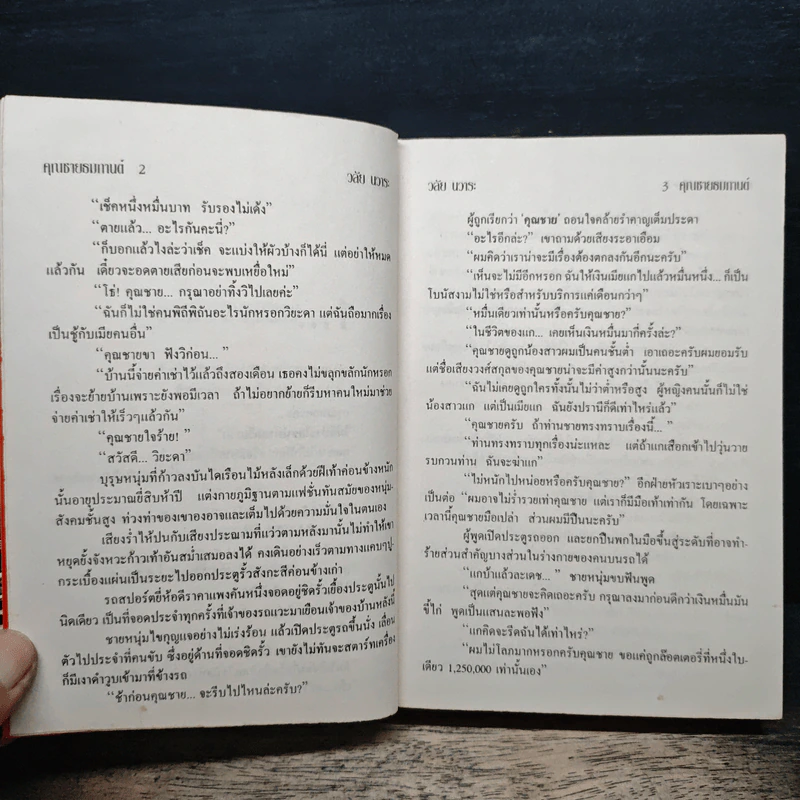 คุณชายธมกานต์ 2
วลัย นวาระ
“เช็คหนึ่งหมื่นบาท รับรองไม่เด้ง”
“ตายแล้ว... อะไรกันคะนี่?”
“ก็บอกแล้วไงล่ะว่าเช็ค จะแบ่งให้ผัวบ้างก็ได้นี่ แต่อย่าให้หมด
แล้วกัน เดี๋ยวจะอดตายเสียก่อนจะพบเหยื่อใหม่”
“โธ่! คุณชาย... กรุณาอย่าทิ้งวิไปเลยค่ะ”
“ฉันก็ไม่ใช่คนพิถีพิถันอะไรนักหรอกวิยะดา แต่ฉันถือมากเรื่อง
เป็นชู้กับเมียคนอื่น”
“คุณชายขา ฟังวิก่อน... ”
“บ้านนี้จ่ายค่าเช่าไว้แล้วถึงสองเดือน เธอคงไม่ขลุกขลักนักหรอก
เรื่องจะย้ายบ้านเพราะยังพอมีเวลา ถ้าไม่อยากย้ายก็รีบหาคนใหม่มาช่วย
จ่ายค่าเช่าให้เร็วๆแล้วกัน”
“คุณชายใจร้าย! ”
“สวัสดี... วิยะดา”
บุรุษหนุ่มที่ก้าวลงบันไดเรือนไม้หลังเล็กด้วยฝีเท้าค่อนข้างหนัก
นั้นอายุประมาณยี่สิบห้าปี แต่งกายภูมิฐานตามแฟชั่นทันสมัยของหนุ่ม-
สังคมชั้นสูง ท่วงท่าของเขาองอาจและเต็มไปด้วยความมั่นใจในตนเอง
เสียงร่ำไห้ปนกับเสียงประณามที่แว่วตามหลังมานั้นไม่ทำให้เขา
หยุดยั้งจังหวะก้าวเท้าอันสม่ำเสมอลงได้ คงเดินอย่างเร็วตามทางแคบๆปู-
กระเบื้องแผ่นเป็นระยะไปออกประตูรั้วสังกะสีค่อนข้างเก่า
รถสปอร์ตยี่ห้อดีราคาแพงคันหนึ่งจอดอยู่ชิดรั้วเยื้องประตูนั้นไป
นิดเดียว เป็นที่จอดประจำทุกครั้งที่เจ้าของรถแวะมาเยือนเจ้าของบ้านหลังนี้
ชายหนุ่มไขกุญแจอย่างไม่เร่งร้อน แล้วเปิดประตูรถขึ้นนั่ง เลื่อน
ตัวไปประจำที่คนขับ ซึ่งอยู่ด้านที่จอดชิดรั้ว เขายังไม่ทันจะสตาร์ทเครื่อง
ก็มีเงาดำวูบเข้ามาที่ข้างรถ
“ช้าก่อนคุณชาย... จะรีบไปไหนล่ะครับ?”
วลัย นวาระ
3 คุณชายธมกานต์
ผู้ถูกเรียกว่า ‘คุณชาย’ ถอนใจคล้ายรำคาญเต็มประดา
“อะไรอีกล่ะ?” เขาถามด้วยเสียงระอาเอือม
“ผมคิดว่าเราน่าจะมีเรื่องต้องตกลงกันอีกนะครับ”
“เห็นจะไม่มีอีกหรอก ฉันให้เงินเมียแกไปแล้วหมื่นหนึ่ง... ก็เป็น
โบนัสงามไม่ใช่หรือสำหรับบริการแค่เดือนกว่าๆ”
“หมื่นเดียวเท่านั้นหรือครับคุณชาย?”
“ในชีวิตของแก... เคยเห็นเงินหมื่นมากี่ครั้งล่ะ?”
“คุณชายดูถูกน้องสาวผมเป็นคนชั้นต่ำ เอาเถอะครับผมยอมรับ
แต่ชื่อเสียงวงศ์สกุลของคุณชายน่าจะมีค่าสูงกว่านั้นนะครับ”
“ฉันไม่เคยดูถูกใครทั้งนั้นไม่ว่าต่ำหรือสูง ผู้หญิงคนนั้นก็ไม่ใช่
น้องสาวแก แต่เป็นเมียแก ฉันยังปรานีก็ดีเท่าไหร่แล้ว”
“คุณชายครับ ถ้าท่านชายทรงทราบเรื่องนี้... ”
“ท่านทรงทราบทุกเรื่องน่ะแหละ แต่ถ้าแกเสือกเข้าไปวุ่นวาย
รบกวนท่าน ฉันจะฆ่าแก”
“ไม่หนักไปหน่อยหรือครับคุณชาย?” อีกฝ่ายหัวเราะเบาๆอย่าง
เป็นต่อ “ผมอาจไม่ร่ำรวยเท่าคุณชาย แต่เราก็มีมือเท้าเท่ากัน โดยเฉพาะ
เวลานี้คุณชายมือเปล่า ส่วนผมมีปืนนะครับ”
ผู้พูดเปิดประตูรถออก และยกปืนพกในมือขึ้นสู่ระดับที่อาจทำ-
ร้ายส่วนสำคัญบางส่วนในร่างกายของคนบนรถได้
“แกบ้าแล้วละเดช... ” ชายหนุ่มขบฟันพูด
“สุดแต่คุณชายจะคิดเถอะครับ กรุณาลงมาก่อนดีกว่าเงินหมื่นมัน
ขี้ไก่ พูดเป็นแสนละพอฟัง”
“แกคิดจะรีดฉันได้เท่าไหร่?”
“ผมไม่โลภมากหรอกครับคุณชาย ขอแค่ถูกล็อตเตอรี่ที่หนึ่งใบ-
เดียว 1,250,000 เท่านั้นเอง”